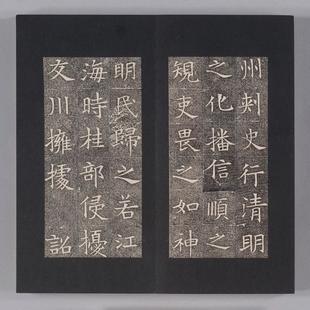 州刾史行清明
之化播信順之
䂓吏畏之如神
明民歸之若江
海時桂部侵擾
交川擁據詔